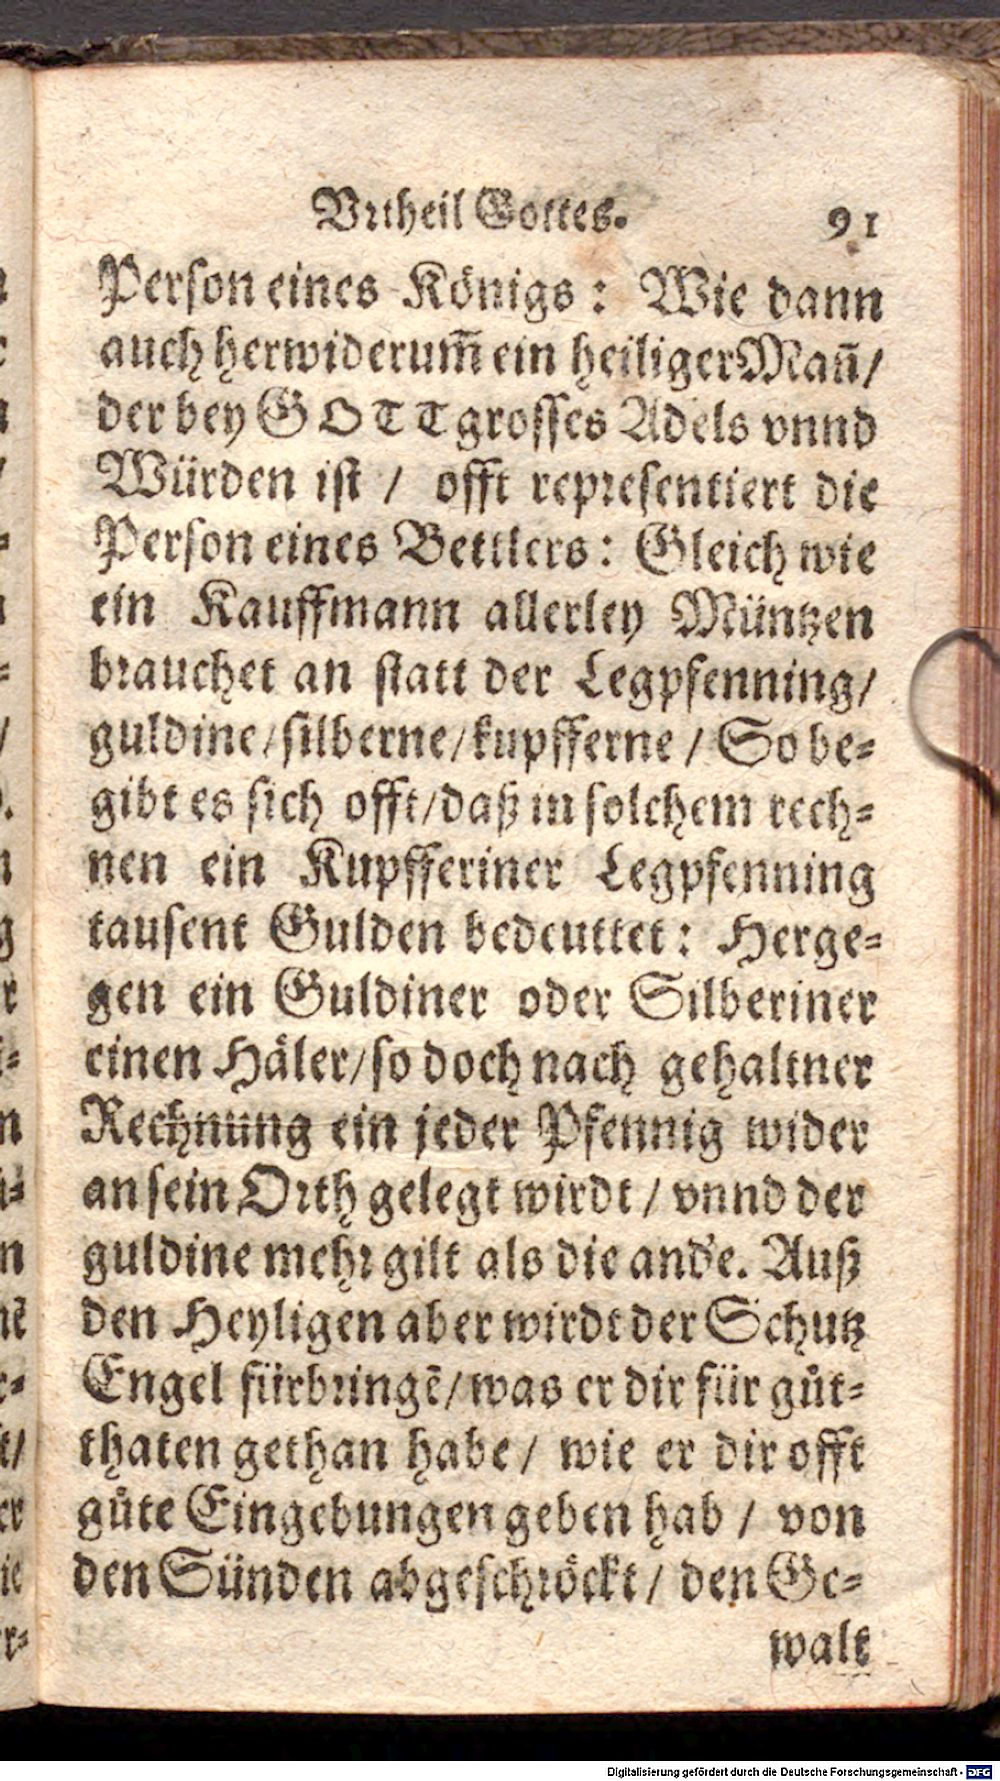 Vrtheil Gottes. 91
Person eines Königs: Wie dann
auch herwiderum̃ ein heiliger Mañ/
der bey GOTT grosses Adels vnnd
Würden ist / offt representiert die
Person eines Bettlers: Gleich wie
ein Kauffmann allerley Müntzen
brauchet an statt der Legpfenning/
guldine/silberne/kupfferne / So be-
gibt es sich offt/daß in solchem rech-
nen ein Kupfferiner Legpfenning
tausent Gulden bedeuttet: Herge-
gen ein Guldiner oder Silberiner
einen Häler/so doch nach gehaltner
Rechnung ein jeder Pfennig wider
an sein Orth gelegt wirdt / vnnd der
guldine mehr gilt als die and'e. Auß
den Heyligen aber wirdt der Schutz
Engel fürbringẽ/was er dir für gůt-
thaten gethan habe / wie er dir offt
gůte Eingebungen geben hab / von
den Sünden abgeschröckt / den Ge-
walt
Digitalisierung gefördert durch die Deutsche Forschungsgemeinschaft - DFG